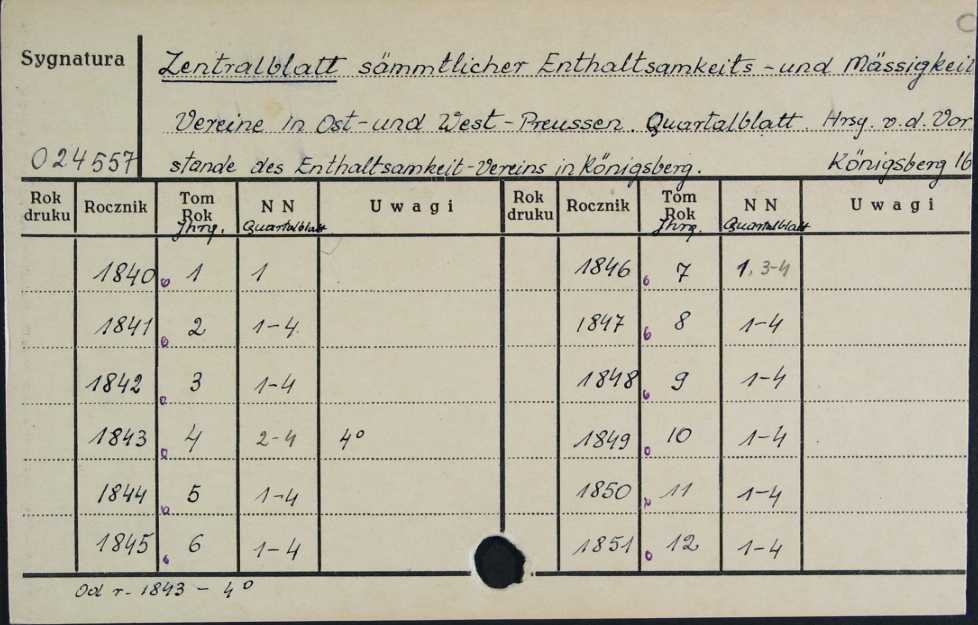 Sygnatura Zentralblatt sämmtlicher Enthaltsamkeits - und Mässigkeit
Vereine in Ost - und West - Preussen. Quartalblatt. Hrsg. v. d. Vor
024557 stande des Enthaltsamkeit-Vereins in Königsberg. Königsberg 16
Rok druku Rocznik Tom Rok Jhrg. N N Quartalblatt Uwagi Rok druku Rocznik Tom Rok Jhrg. N N Quartalblatt Uwagi
1840 1 1 1846 7 1, 3-4
1841 2 1-4 1847 8 1-4
1842 3 1-4 1848 9 1-4
1843 4 2-4 4° 1849 10 1-4
1844 5 1-4 1850 11 1-4
1845 6 1-4 1851 12 1-4
Od r. 1843 - 4°